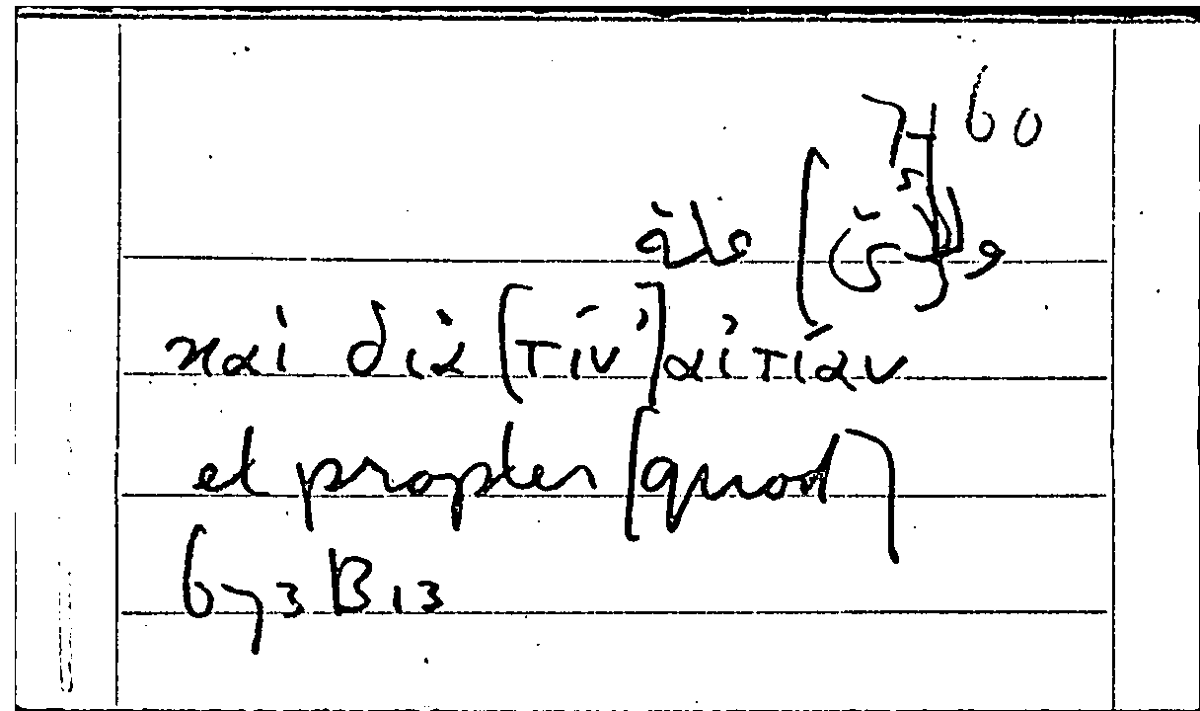 7 | 60
و[لأيّ] علة
καὶ διὰ [τίν'] αἰτίαν
et propter [quod]
673 B 13